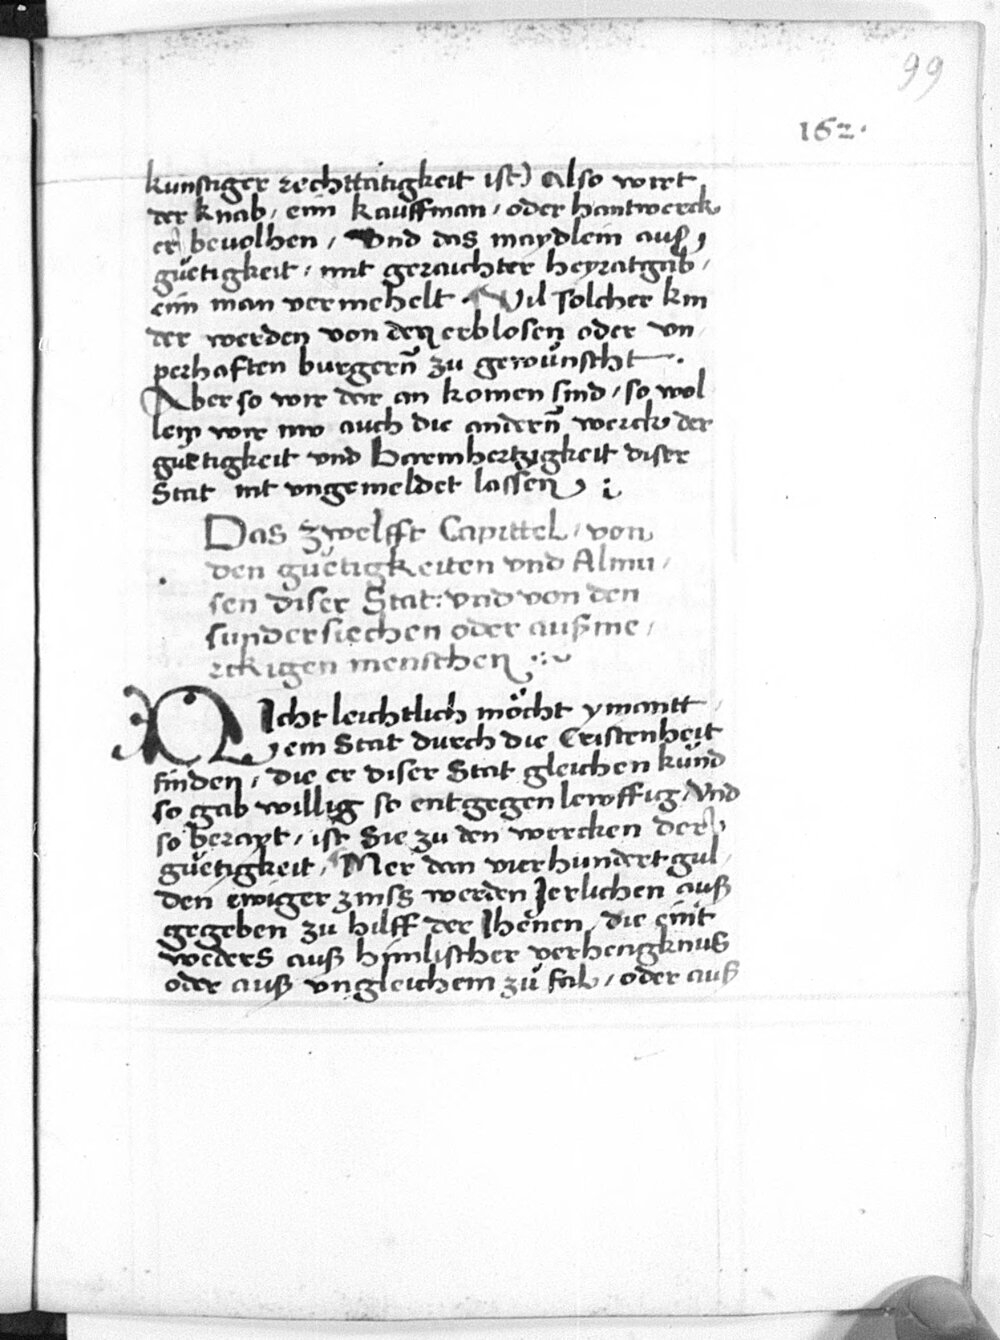 99
162.
kunstiger rechttätigkeit ist) Also wirt
der knab, ein kauffman, oder hantwerck
er bevolhen, Und das maydlein auß,
güetigkeit, mit geraichter heyratgab,
eim man vermehelt. Vil solcher kin
der werden von den erblosen oder vn,
perhaften burgern̄ zu gewünscht.
Aber so wir dar an komen sind, so wol
len wir nw auch die andern̄ werck der
güetigkeit vnd Barmhertzigkeit diser
Stat nit vngemeldet lassen
Das zwelfft Capittel, von
den güetigkeiten vnd Almu,
sen diser Stat: vnd von den
sundersiechen oder außme,
rckigen menschen
Nicht leichtlich möcht ymantt,
ein Stat durch die Cristenheit
finden, die er diser Stat gleichen künd
so gab willig so entgegen lewffig, Vnd
so berayt, ist Sie zu den wercken der,
güetigkeit, Mer dan vierhundert gul,
den ewiger zinss werden Jerlichen auß
gegeben zu hilff der Jhenen, die eint
weders auß himlischer verhengknus
oder auß vngleichem zü fal, oder auß